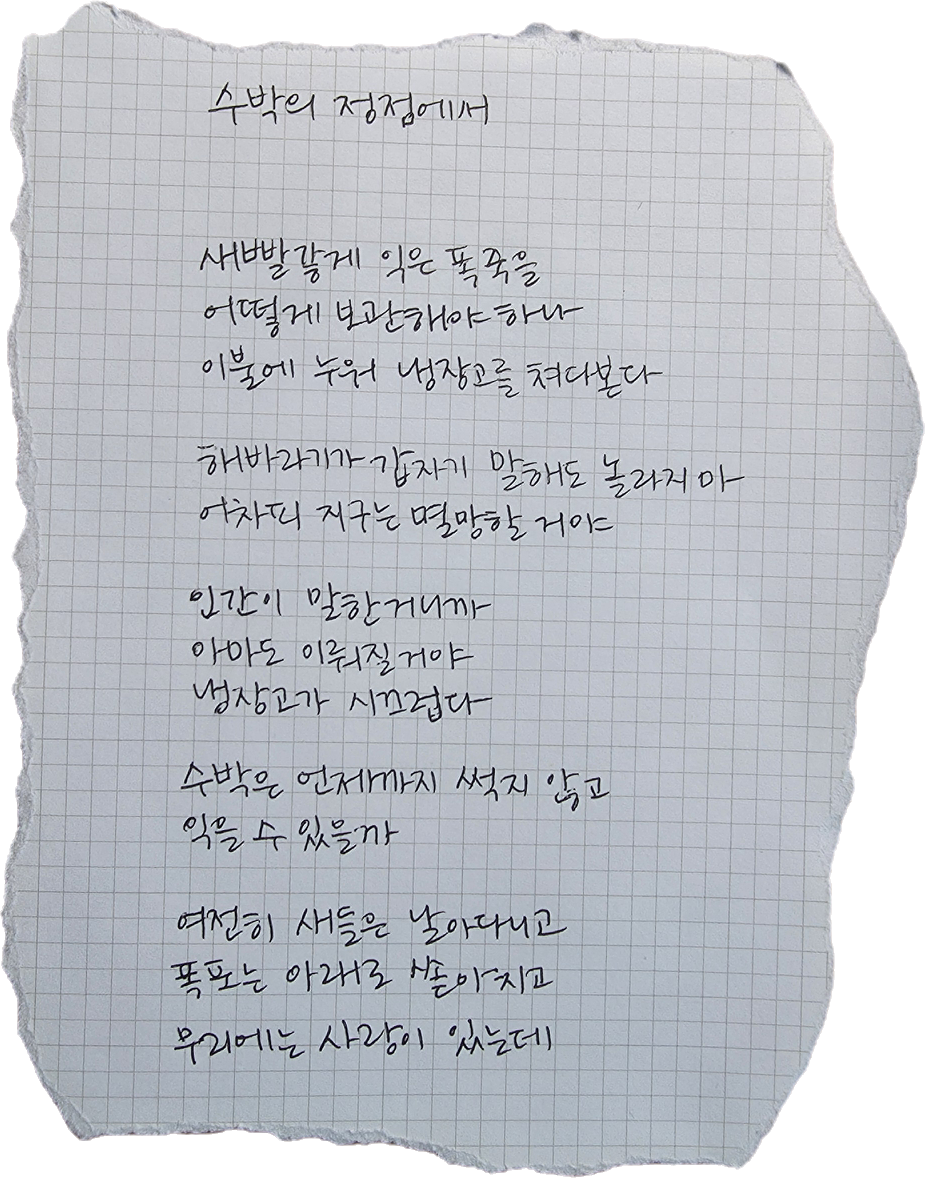 수박의 정점에서
새빨갛게 익은 폭죽을
어떻게 보관해야 하나
이불에 누워 냉장고를 쳐다본다
해바라기가 갑자기 말해도 놀라지 마
어차피 지구는 멸망할 거야
인간이 말한거니까
아마도 이뤄질거야
냉장고가 시끄럽다
수박은 언제까지 썩지 않고
익을 수 있을까
여전히 새들은 날아다니고
폭포는 아래로 쏟아지고
무리에는 사랑이 있는데